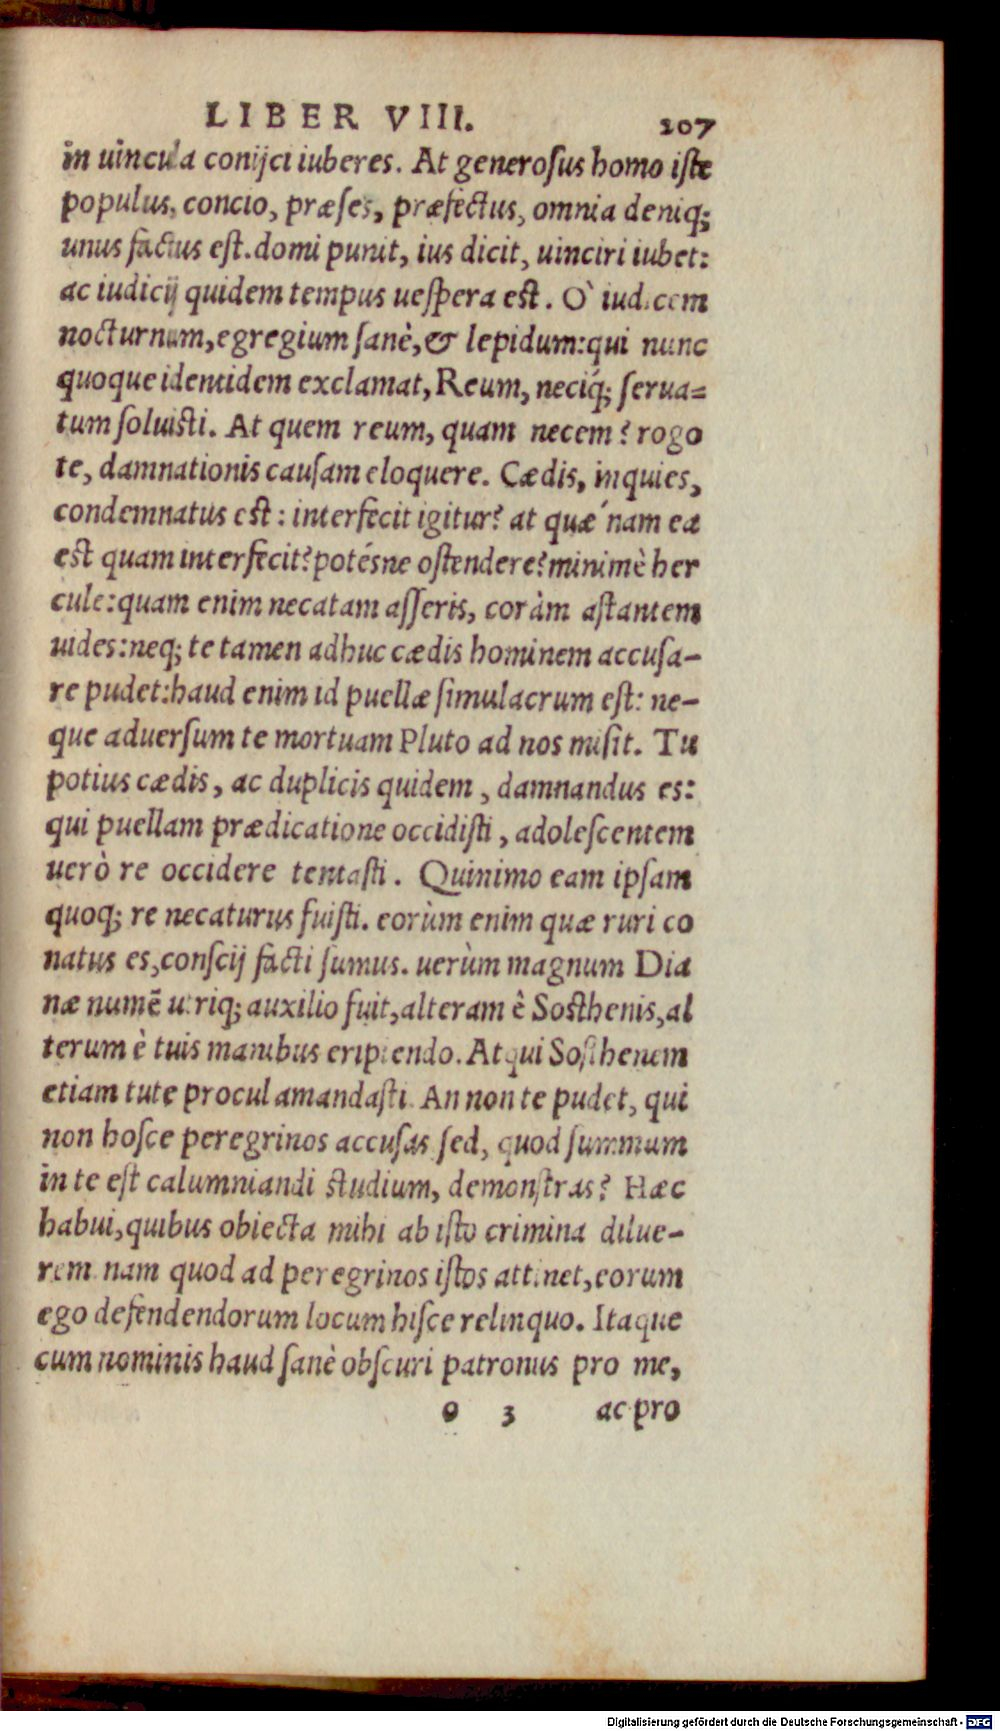 LIBER VIII. 207
in uincula conijci iuberes. At generosus homo iste
populus, concio, præses, præfectus, omnia deniq;
unus factus est. domi punit, ius dicit, uinciri iubet:
ac iudicij quidem tempus uespera est. O` iudicem
nocturnum, egregium sanè, & lepidum: qui nunc
quoque identidem exclamat, Reum, neciq́; serua=
tum soluisti. At quem reum, quam necem? rogo
te, damnationis causam eloquere. Cædis, inquies,
condemnatus est: interfecit igitur? at quæ´nam ea
est quam interfecit? potésne ostendere? minimè her
cule: quam enim necatam asseris, coràm astantem
uides: neq; te tamen adhuc cædis hominem accusa-
re pudet: haud enim id puellæ simulacrum est: ne-
que aduersum te mortuam Pluto ad nos misit. Tu
potius cædis, ac duplicis quidem, damnandus es:
qui puellam prædicatione occidisti, adolescentem
uerò re occidere tentasti. Quinimo eam ipsam
quoq; re necaturus fuisti. eorùm enim quæ ruri co
natus es, conscij facti sumus. uerùm magnum Dia
næ numẽ utriq; auxilio fuit, alteram è Sosthenis, al
terum è tuis manibus eripiendo. Atqui Sosthenem
etiam tute procul amandasti. An non te pudet, qui
non hosce peregrinos accusas sed, quod summum
in te est calumniandi studium, demonstras? Hæc
habui, quibus obiecta mihi ab isto crimina dilue-
rem. nam quod ad peregrinos istos attinet, eorum
ego defendendorum locum hisce relinquo. Itaque
cum nominis haud sanè obscuri patronus pro me,
o 3 ac pro
Digitalisierung gefördert durch die Deutsche Forschungsgemeinschaft - DFG